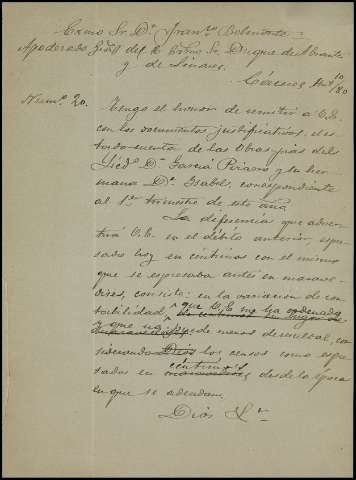 Excmo Sr. Dn. Francco Belmonte =
Apoderado Gral del E. Excmo Sr. Duque de Abrante
y de Linares.
Cáceres 10/80
Numo. 20.
Tengo el honor de remitir a V.E.
con los documentos justificativos, el es-
tado-cuenta de las Obras-pias del
Licdo Dn. García Pizarro y su her-
mana Da. Isabel, correspondiente
al 1er trimestre de este año
La diferencia que adver-
tirá V.E. en el débito anterior, expre-
sado hoy en céntimos con el mismo
que se espresaba antes en marave-
dises, consiste en la variacion de con-
tabilidad, que V.E. me ha ordenado
y que no de menos de mensual, con-
siderando los censos como espre-
sados en céntimos desde la época
en que se adeudan.
Dios &a